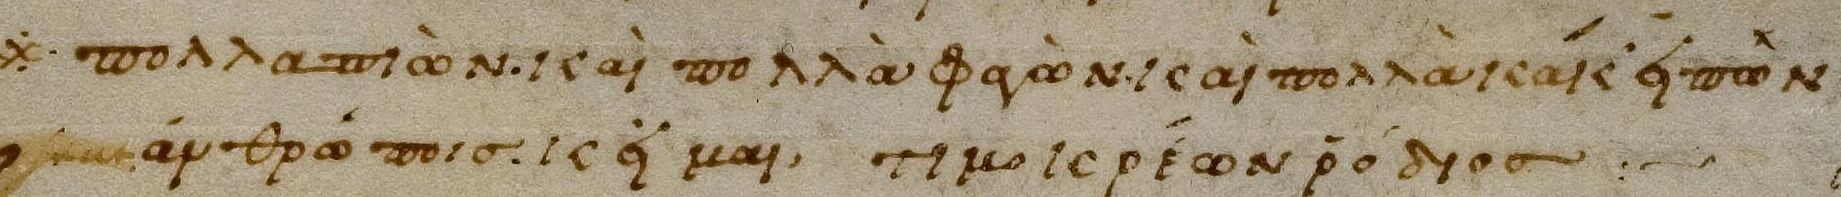 πολλὰ πιὼν· καὶ πολλὰ φαγὼν· καὶ πολλὰ κάκ' εἰπὼν
ἀνθρώποισ· κεῖμαι, τιμοκρέων ῥόδιος :~